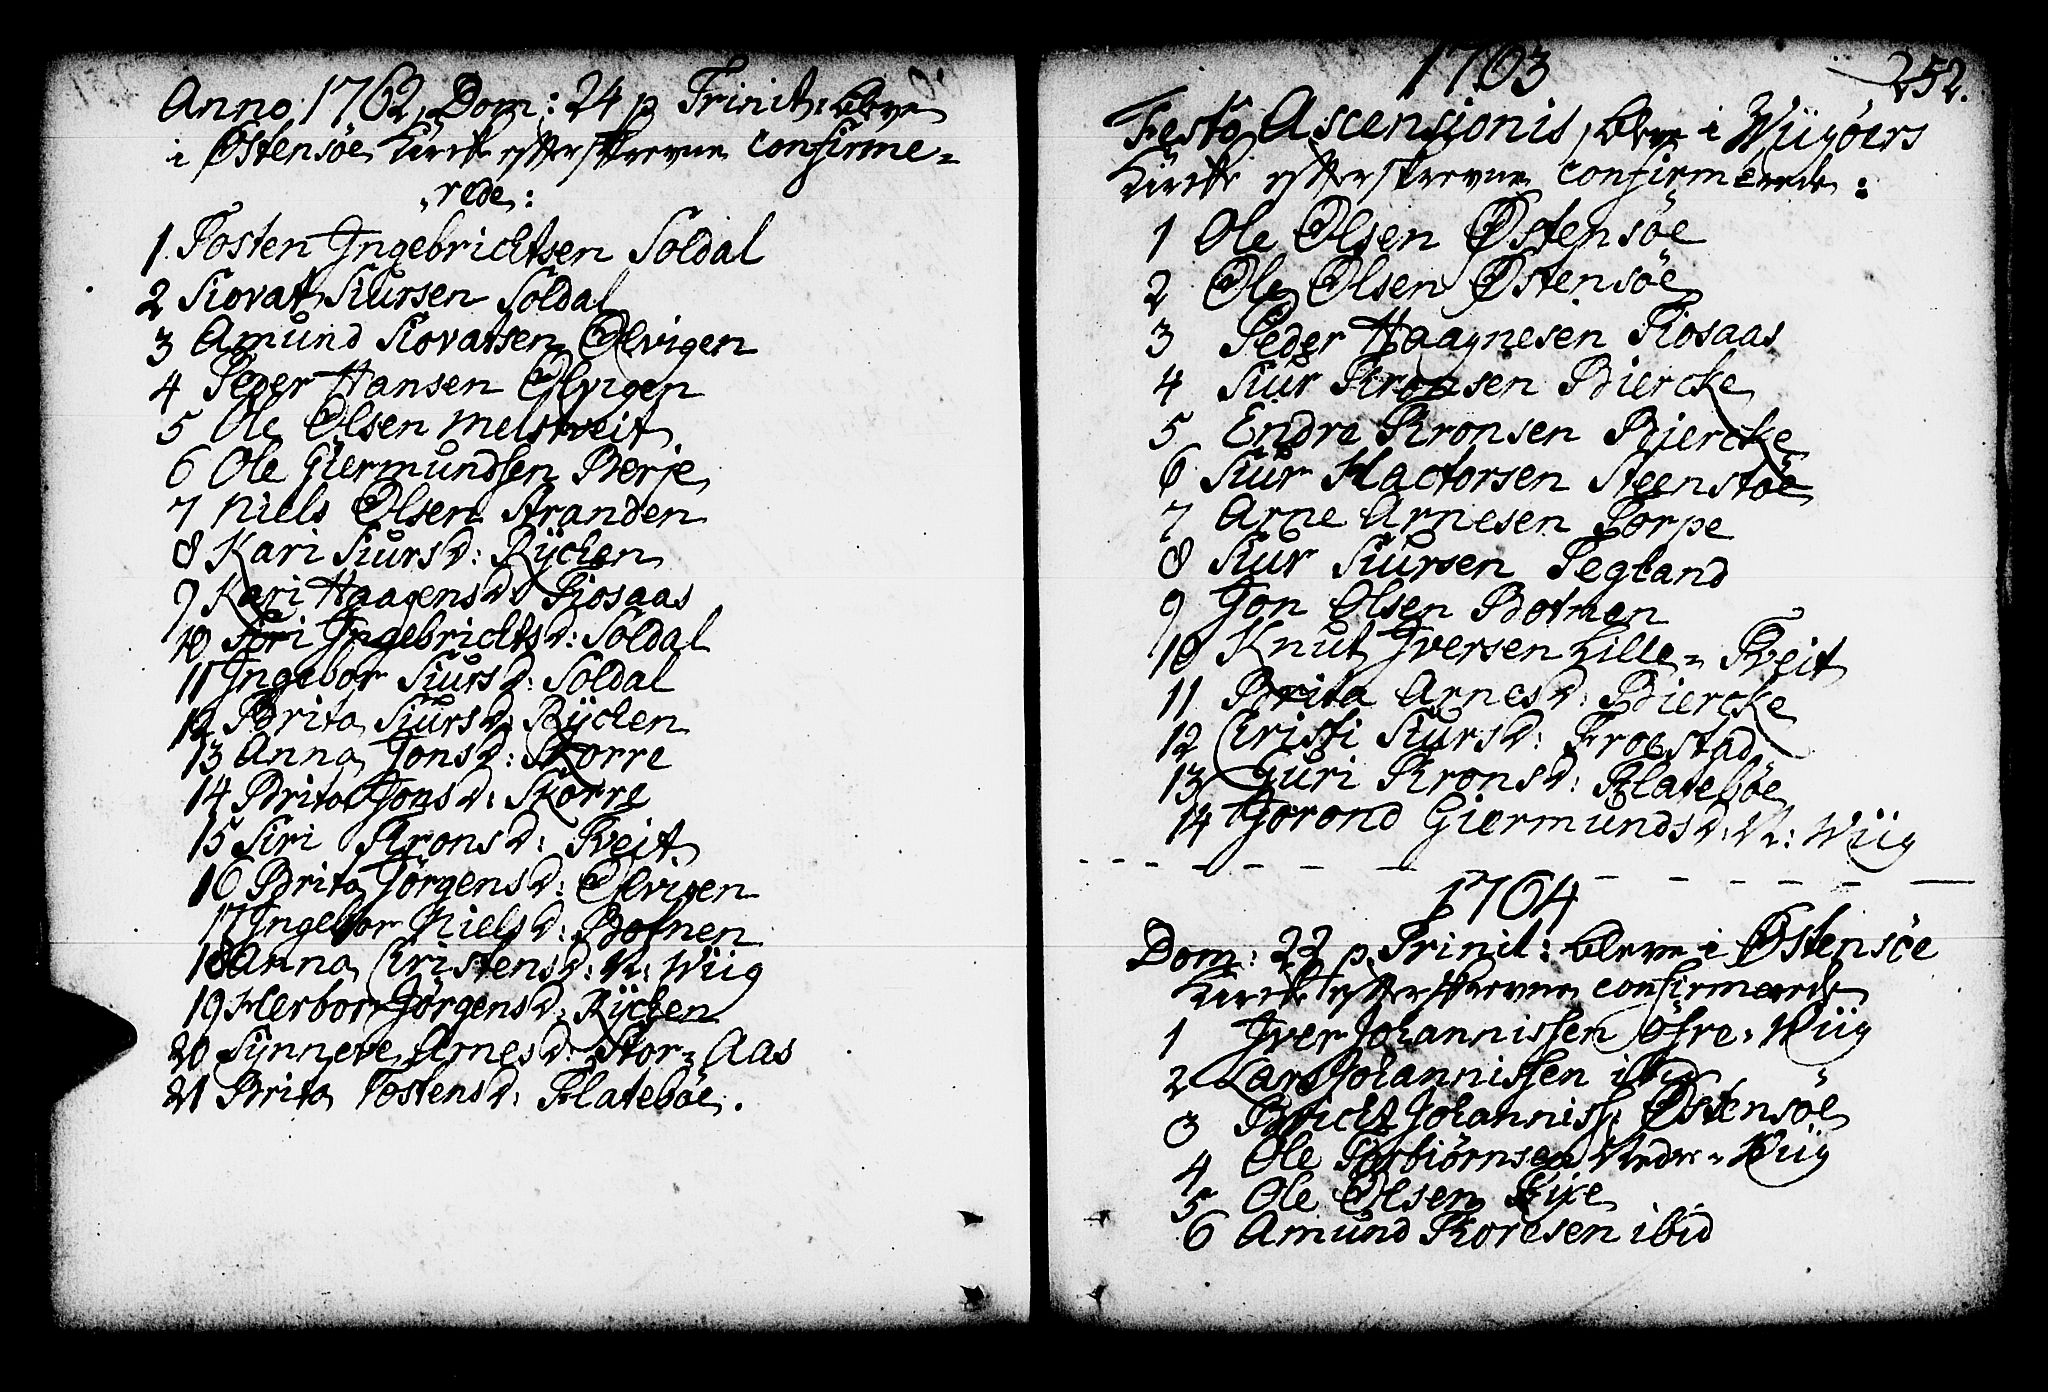 Anno 1762, Dom: 24 p Trinit: bleve
i Østensøe Kircke efterskrevne confirme-
rede:
1 Tosten Ingebrichtsen Soldal
2 Siovat Siursen Soldal
3 Amund Siovatsen Ølvigen
4 Peder Hansen Ølvigen
5 Ole Olsen Melstveit
6 Ole Giermundsen Berje
7 Niels Olsen Stranden
8 Kari Siursd: Rÿcken
9 Kari Haagensd: Tiosaas
10 Siri Ingebrichtsd: Soldal
11 Ingebor Siursd: Soldal
12 Brita Siursd: Rÿcken
13 Anna Jonsd: Skorre
14 Brita Jonsd: Skorre
15 Siri Aronsd: Tveit
16 Brita Jørgensd: Ølvigen
17 Ingebor Nielsd: Botnen
18 Anna Kristensd: N: Wiig
19 Herbor Jørgensd: Rÿcken
20 Sÿnneve Arnesd: Stor-Aas
21 Brita Tostensd: Flatebøe.
252.
1763
Festo Ascensionis, bleve i Wiigøers
Kircke efterskrevne confirmerede:
1 Ole Olsen Østensøe
2 Ole Olsen Østensøe
3 Peder Haagnesen Tiosaas
4 Siur Aronsen Biercke
5 Endre Aronsen Biercke
6 Siur Hactorsen Steenstøe
7 Arne Arnesen Torpe
8 Siur Siursen Tegland
9 Jon Olsen Botnen
10 Knut Iversen Lille-Tveit
11 Brita Arnesd: Biercke
12 Kristi Siursd: Froestad
13 Guri Aronsd: Flatebøe
14 Gorond Giermundsd: N: Wiig
1764
Dom: 22 p. Trinit: bleve i Østensøe
Kircke efterskrevne confirmerede
1 Iver Johannissen Øfre-Wiig
2 Lars Johannissen ibid
3 Bricht Johanniss: Østensøe
4 Ole Torbiørnsen Nedre-Wiig
5 Ole Olsen
6 Amund Toresen ibid